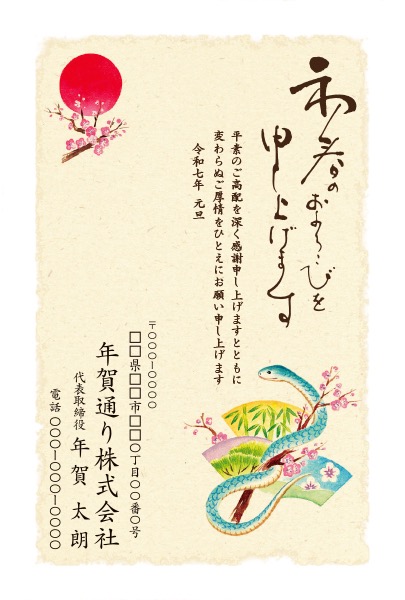 初春のおよろこびを
申し上げます
平素のご高配を深く感謝申し上げますとともに
変わらぬご厚情をひとえにお願い申し上げます
令和七年 元旦
〒〇〇〇-〇〇〇〇
□□県□□市□□〇丁目〇〇番〇号
年賀通り株式会社
代表取締役 年賀 太朗
電話 〇〇〇-〇〇〇-〇〇〇〇